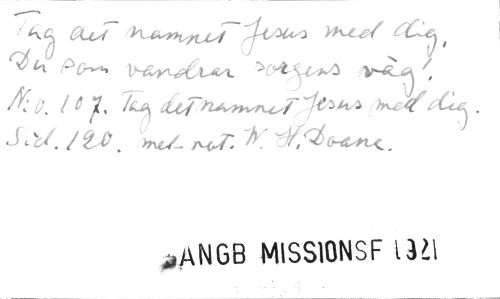 Tag det namnet Jesus med dig,
Du som vandrar sorgens väg!
N:o. 107. Tag det namnet Jesus med dig.
Sid. 120. mel. not. W. H. Doane.
SANGB MISSIONSF 1921